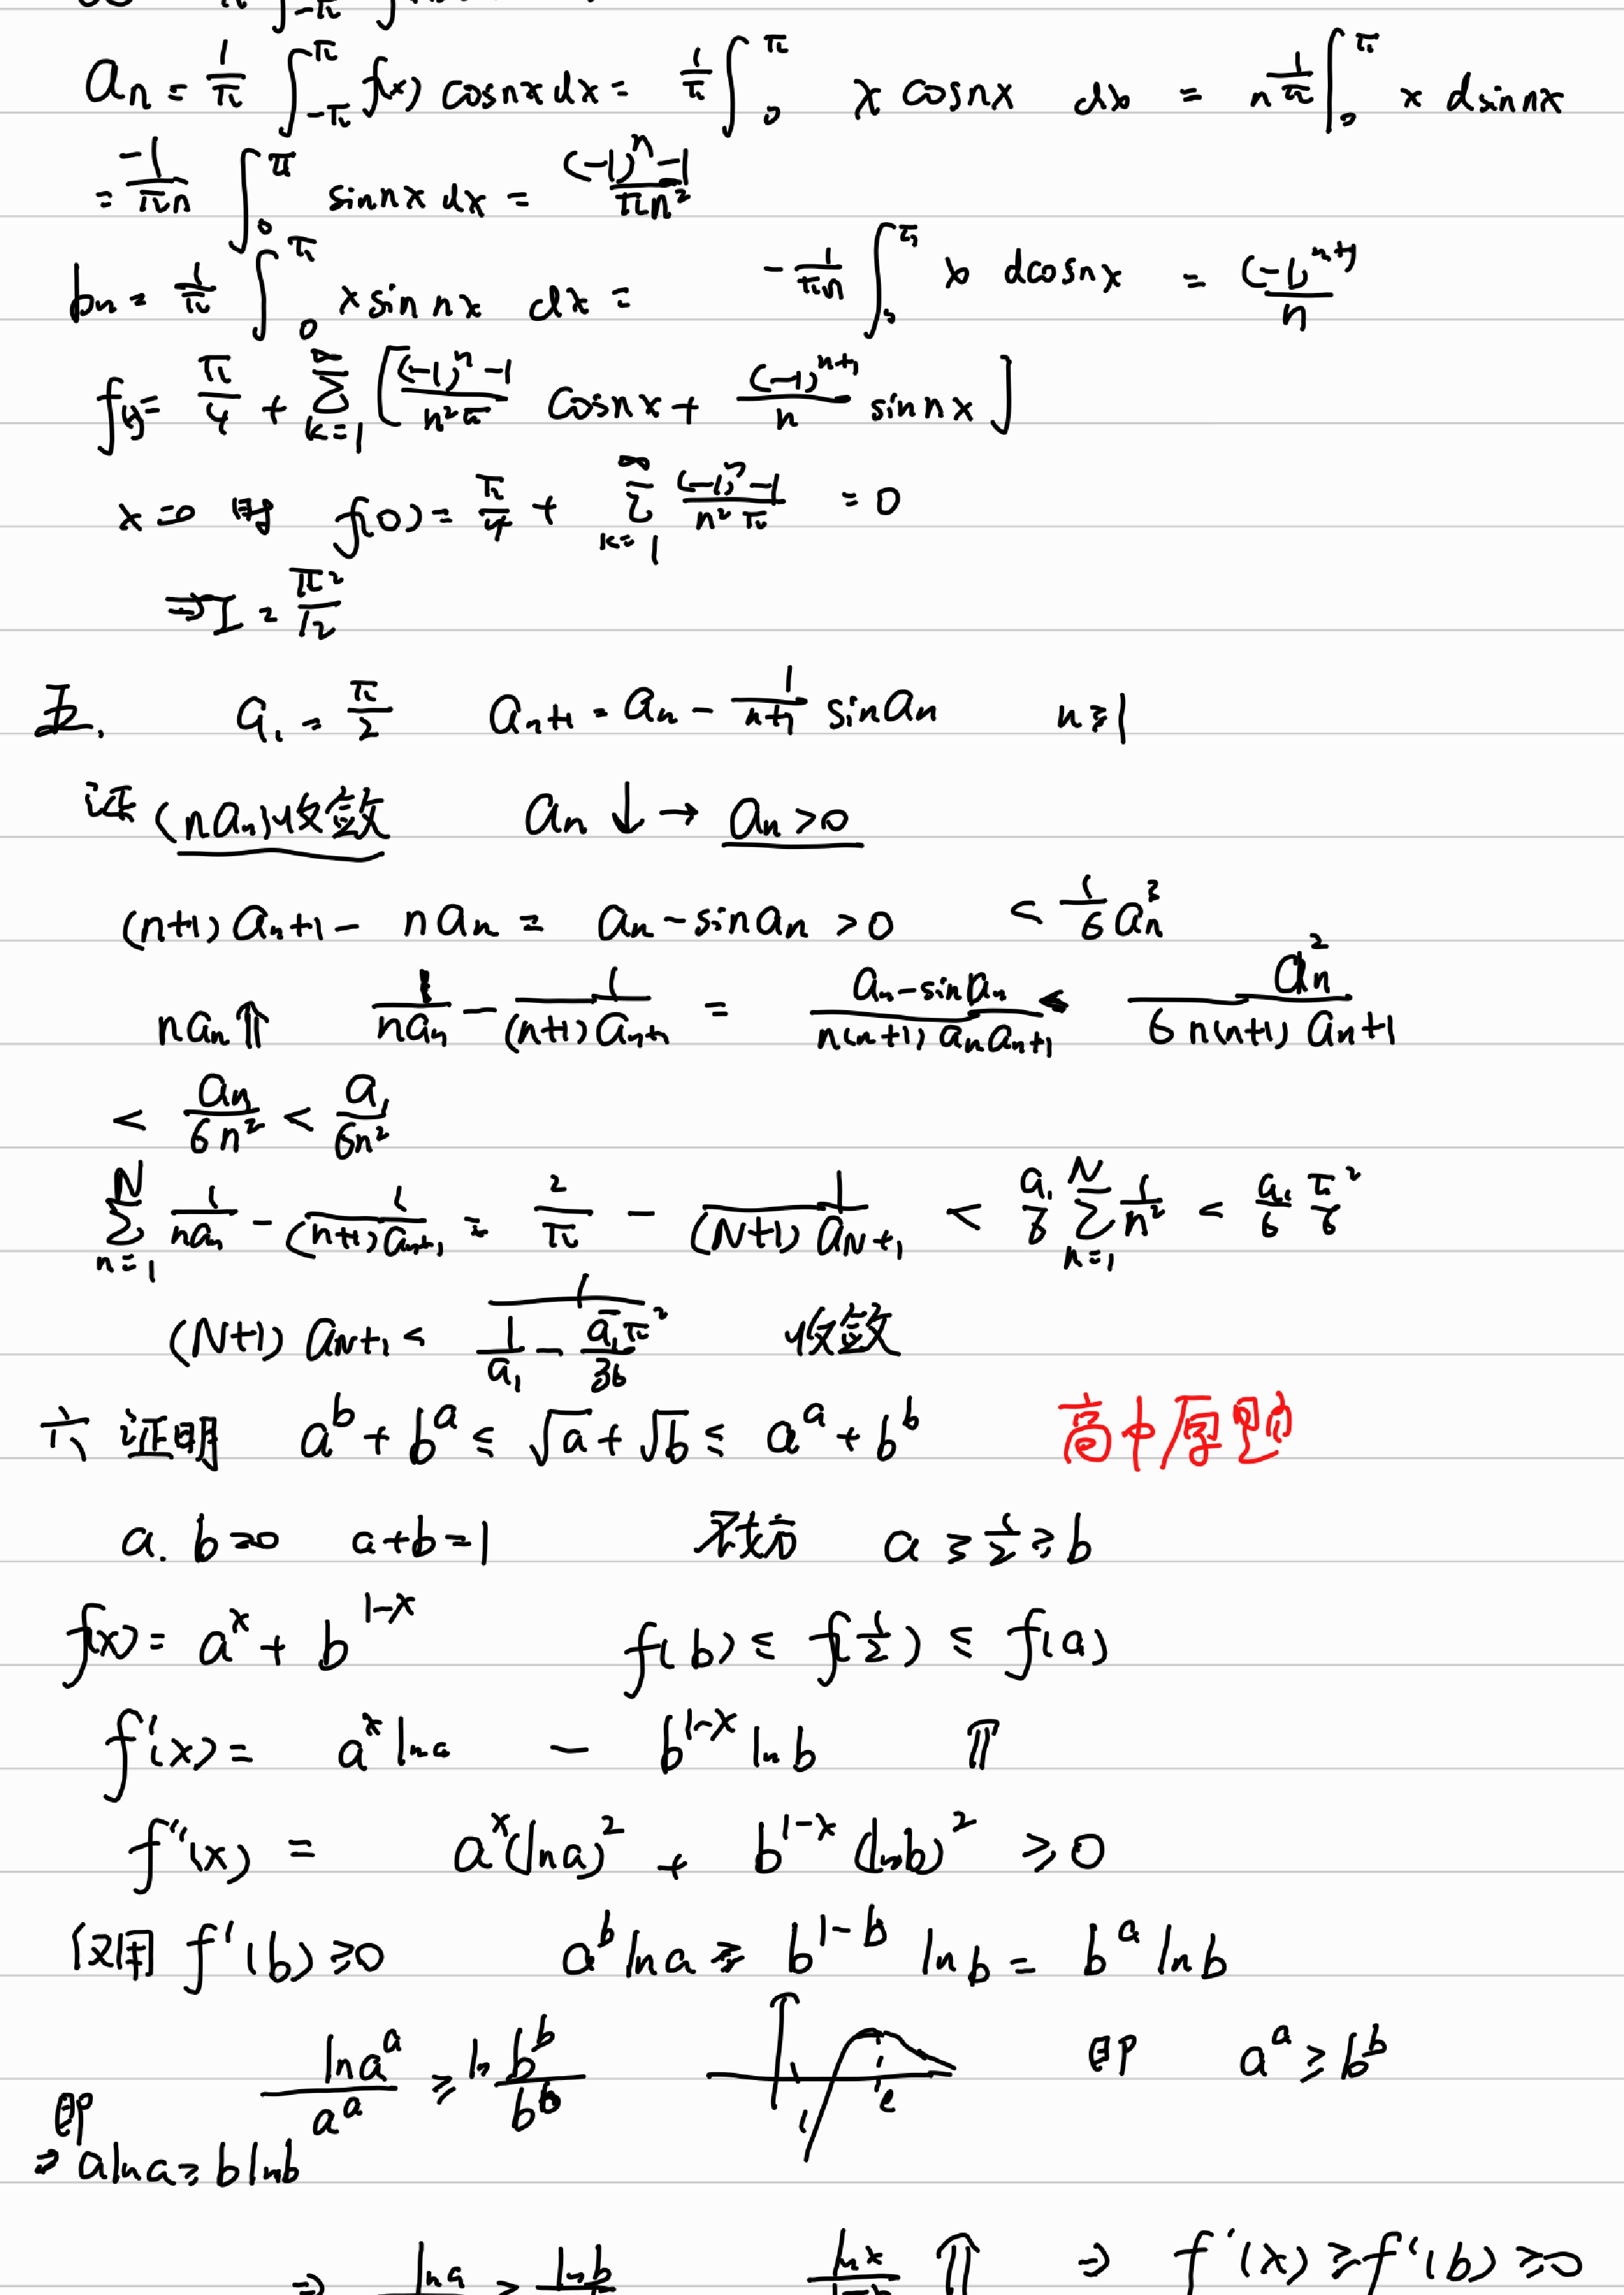 aₙ = 1/π ∫_{-π}^{π} f(x) cosnx dx = 1/π ∫_0^π x cosnx dx = 1/(nπ) ∫_0^π x dsinnx
= -1/(πn) ∫_0^π sinnx dx = ((-1)^n -1)/(πn²)
bₙ = 1/π ∫_0^π x sin nx dx = -1/(πn) ∫_0^π x dcosnx = (-1)^{n+1}/n
f(x) = π/4 + Σ_{k=1}^∞ [((-1)^n -1)/(n²π) cosnx + (-1)^{n+1}/n sinnx]
x=0 时 f(0) = π/4 + Σ_{k=1}^∞ ((-1)^n -1)/(n²π) = 0
⇒ I = π²/12
五. a₁ = π/2 a_{n+1} = aₙ - 1/(n+1) sinaₙ n≥1
证 (naₙ)收敛 aₙ↓ → aₙ>0
(n+1)a_{n+1} - naₙ = aₙ - sinaₙ > 0 < 1/6 aₙ³
naₙ⇑ 1/(naₙ) - 1/((n+1)a_{n+1}) = (aₙ - sinaₙ)/(n(n+1)aₙa_{n+1}) < aₙ²/(6n(n+1)a_{n+1})
< aₙ/(6n²) < a₁/(6n²)
Σ_{n=1}^N 1/(naₙ) - 1/((n+1)a_{n+1}) = 2/π - 1/((N+1)a_{N+1}) < a₁/6 Σ_{n=1}^N 1/n² < a₁/6 π²/6
(N+1)a_{N+1} < 1/(1/a₁ - a₁π²/36) 收敛
六 证明 a^b + b^a ≤ √a + √b ≤ a^a + b^b 高中原题
a. b>0 a+b=1 不妨 a ≥ 1/2 ≥ b
f(x) = a^x + b^{1-x} f(b) ≤ f(1/2) ≤ f(a)
f'(x) = a^x lna - b^{1-x} lnb ⇑
f''(x) = a^x(lna)² + b^{1-x}(lnb)² ≥ 0
仅用 f'(b) ≥ 0 a^b lna ≥ b^{1-b} lnb = b^a lnb
即 lna^a/a^a ≥ ln b^b/b^b 1 e 即 a^a ≥ b^b
⇒ alna ≥ blnb
⇒ lna > lnb lnx ⇑ ⇒ f'(x) ≥ f'(b) ≥ 0